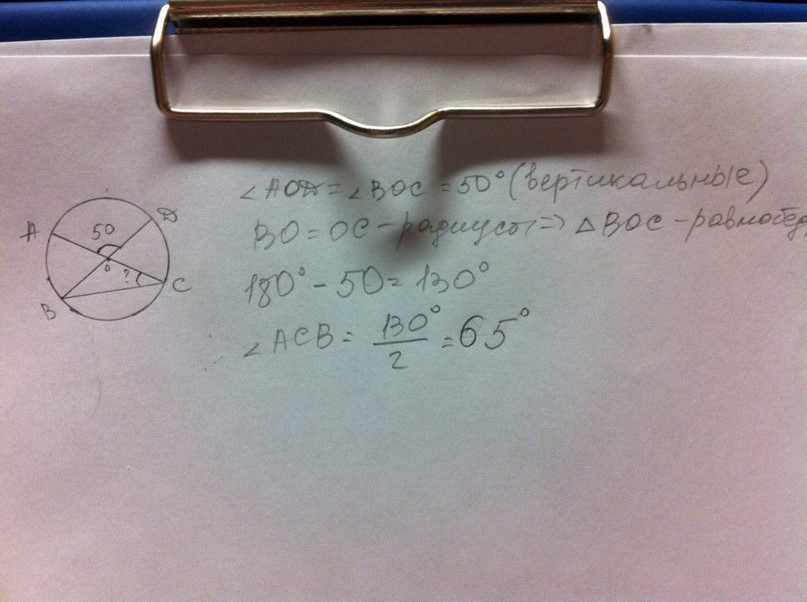 A
50
D
O
?
C
B
∠AOD = ∠BOC = 50° (вертикальные)
BO = OC - радиусы => △BOC - равнобед
180° - 50 = 130°
∠ACB = 130°/2 = 65°